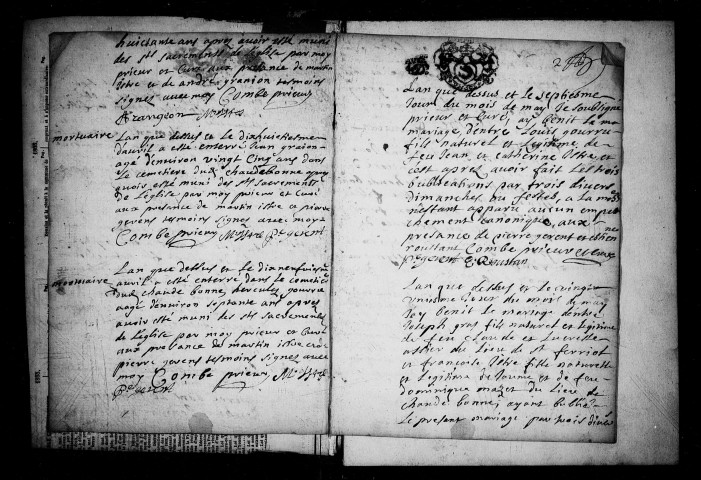 huictante ans apres avoir esté muni
des sts sacrements de leglise par moy
prieur et curé aux presance de martin
istre et de andré granion tesmoins
signes avec moy Combe prieur
Arangeon Mistre
mortuaire
Lan que dessus et le
d'avril a esté enterré Jean
agé denviron vingt Cinq ans dans
le cemetiere dud chaudebonne apres
quois esté muni des sts sacrements
de Leglise par moy prieur et curé
aux presance de martin istre et pierre
gevent tesmoins signes avec moy
Combe prieur Mistre Pegevent
mortuaire
Lan que dessus et le dixneufuiesme
avril a esté enterré dans le cemetiere
dud chaude bonne hercules
aagé denviron septante ans apres
avoir esté muni des sts sacrements
de leglise par moy prieur et curé
aux presance de martin istre et
pierre gevent tesmoins signes avec
moy Combe prieur Mistre
Pegevent
2
Lan que dessus et le septiesme
Jour du mois de may Je soubsigné
prieur et curé, ay benit le
mariage, dentre Louis gourru
fils naturel et Legitime, de
feu Jean, et catherine istre, et
cest apres avoir fait Les trois
publications par trois divers
dimanches ou festes, a la messe
n'estant apparu aucun empe
chement canonique, aux
presance de pierre gevent et estienne
roustant Combe prieur et curé
Pegevent E Roustan
Lan que dessus et le vingt
uniesme Jour du mois de may
Jay benit le mariage dentre
Joseph gras fils naturel et legitime
de feu claude et lucresse
du lieu de st ferriol
et francoise istre fille naturelle
et legitime de et de feu
dominique mazet du Lieu de
chaude bonne, ayant publié
le present mariage par trois divers